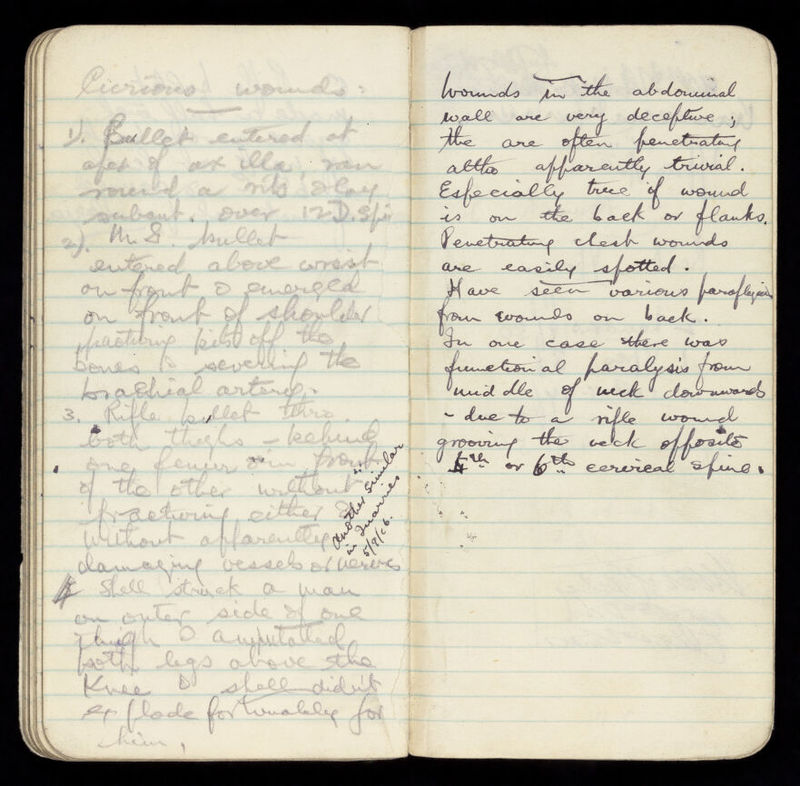 Curious wounds:
1). Bullet entered at
apex of axilla ran
round a rib & lay
subcut. over 12 D. Spi
2). M.G. bullet
entered above wrist
on front & emerged
on front of shoulder
bones & severing the
brachial artery.
3. Rifle bullet thro
both thighs – behind
one femur & in front
of the other without
fracturing either &
without apparently
damaging vessels or nerves
Another similar
in
5/9/16.
4 Shell struck a man
on outer side of one
thigh & amputated
both legs above the
Knee & shell didn't
explode fortunately for
him,
Wounds in the abdominal
wall are very deceptive;
the are often penetrating
altho apparently trivial.
Especially true if wound
is on the back or flanks.
Penetrating chest wounds
are easily spotted.
Have seen various paraplegias
from wounds on back.
In one case there was
functional paralysis from
middle of neck downwards
– due to a rifle wound
grooving the neck opposite
4th or 6th cervical spine.